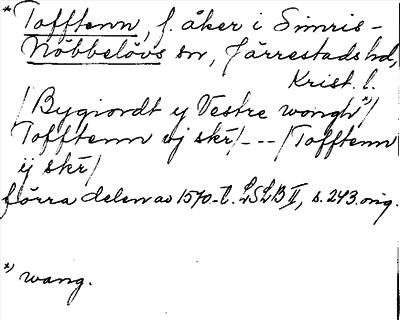 * Tofftenn, f. åker i Simris-
Nöbbelövs sn, Järrestads hd,
Krist. l.
/Bygiordt y Vestre wongh*)/
Tofftenn vj skr̄/---/Tofftenn
ij skr̄/
förra delen av 1570-t. LSLB II, s. 243. orig.
*) wang.